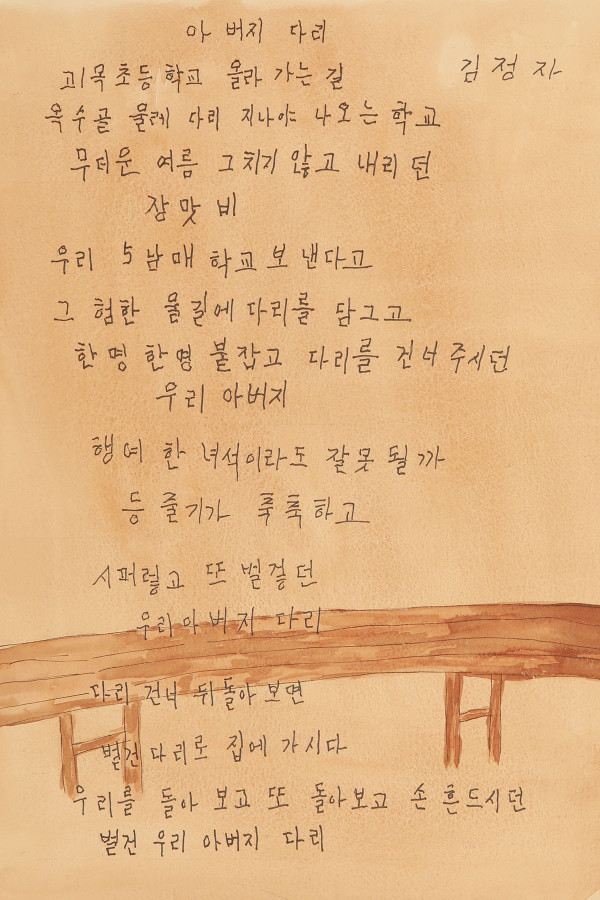 아버지 다리
김정자
괴목초등학교 올라 가는 길
옥수골 물레 다리 지나야 나오는 학교
무더운 여름 그치지 않고 내리던
장맛비
우리 5남매 학교 보낸다고
그 험한 물길에 다리를 담그고
한명 한명 붙잡고 다리를 건너 주시던
우리 아버지
행여 한 녀석이라도 잘못 될까
등 줄기가 축축하고
시퍼렇고 또 벌겋던
우리 아버지 다리
다리 건너 뒤돌아 보면
벌건 다리로 집에 가시다
우리를 돌아 보고 또 돌아보고 손 흔드시던
벌건 우리 아버지 다리